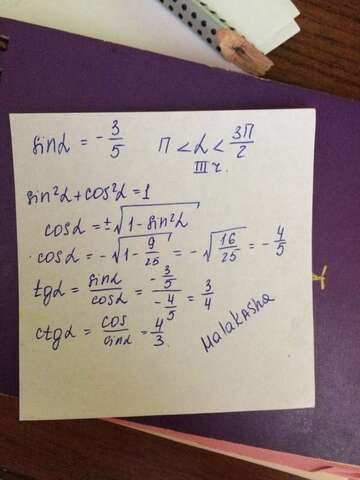 sinα = -3/5 π < α < 3π/2
III ч.
sin²α + cos²α = 1
cosα = ±√(1 - sin²α)
cosα = -√(1 - 9/25) = -√(16/25) = -4/5
tgα = sinα/cosα = (-3/5)/(-4/5) = 3/4
ctgα = cos/sinα = 4/3
MalakASha